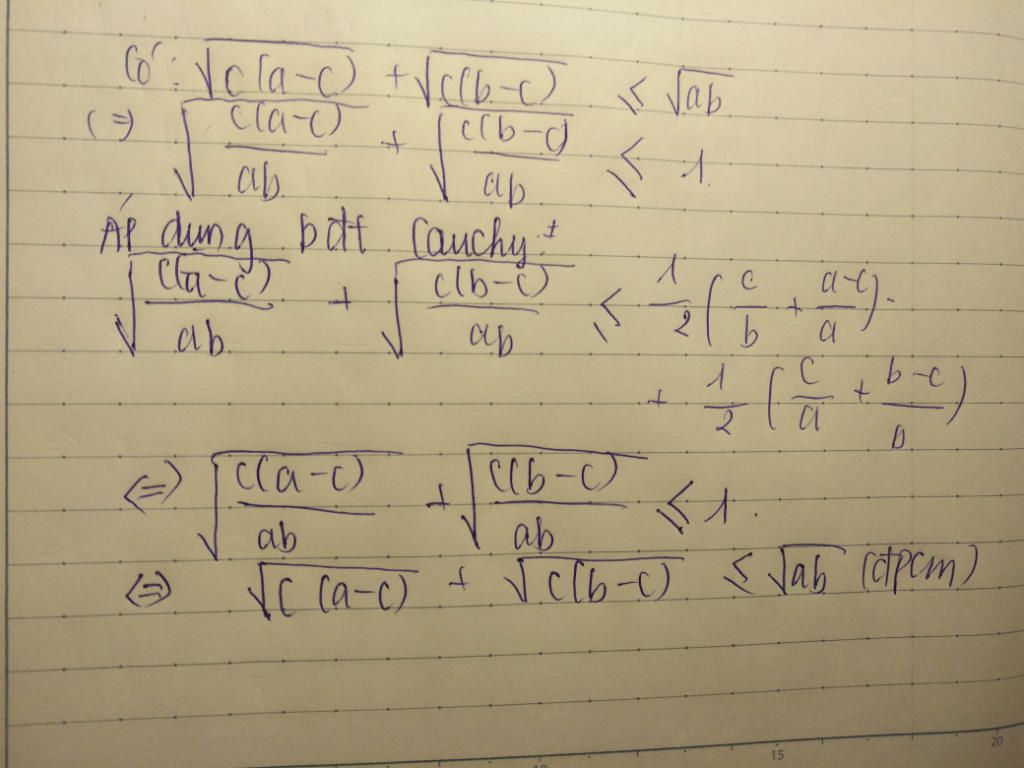 Có: √(c(a-c)) + √(c(b-c)) ≤ √(ab)
(=) √(c(a-c)/ab) + √(c(b-c)/ab) ≤ 1.
Áp dụng bđt Cauchy:
√(c(a-c)/ab) + √(c(b-c)/ab) ≤ 1/2 (c/b + (a-c)/a).
+ 1/2 (c/a + (b-c)/b)
<=> √(c(a-c)/ab) + √(c(b-c)/ab) ≤ 1.
<=> √(c(a-c)) + √(c(b-c)) ≤ √(ab) (đpcm)
15 20